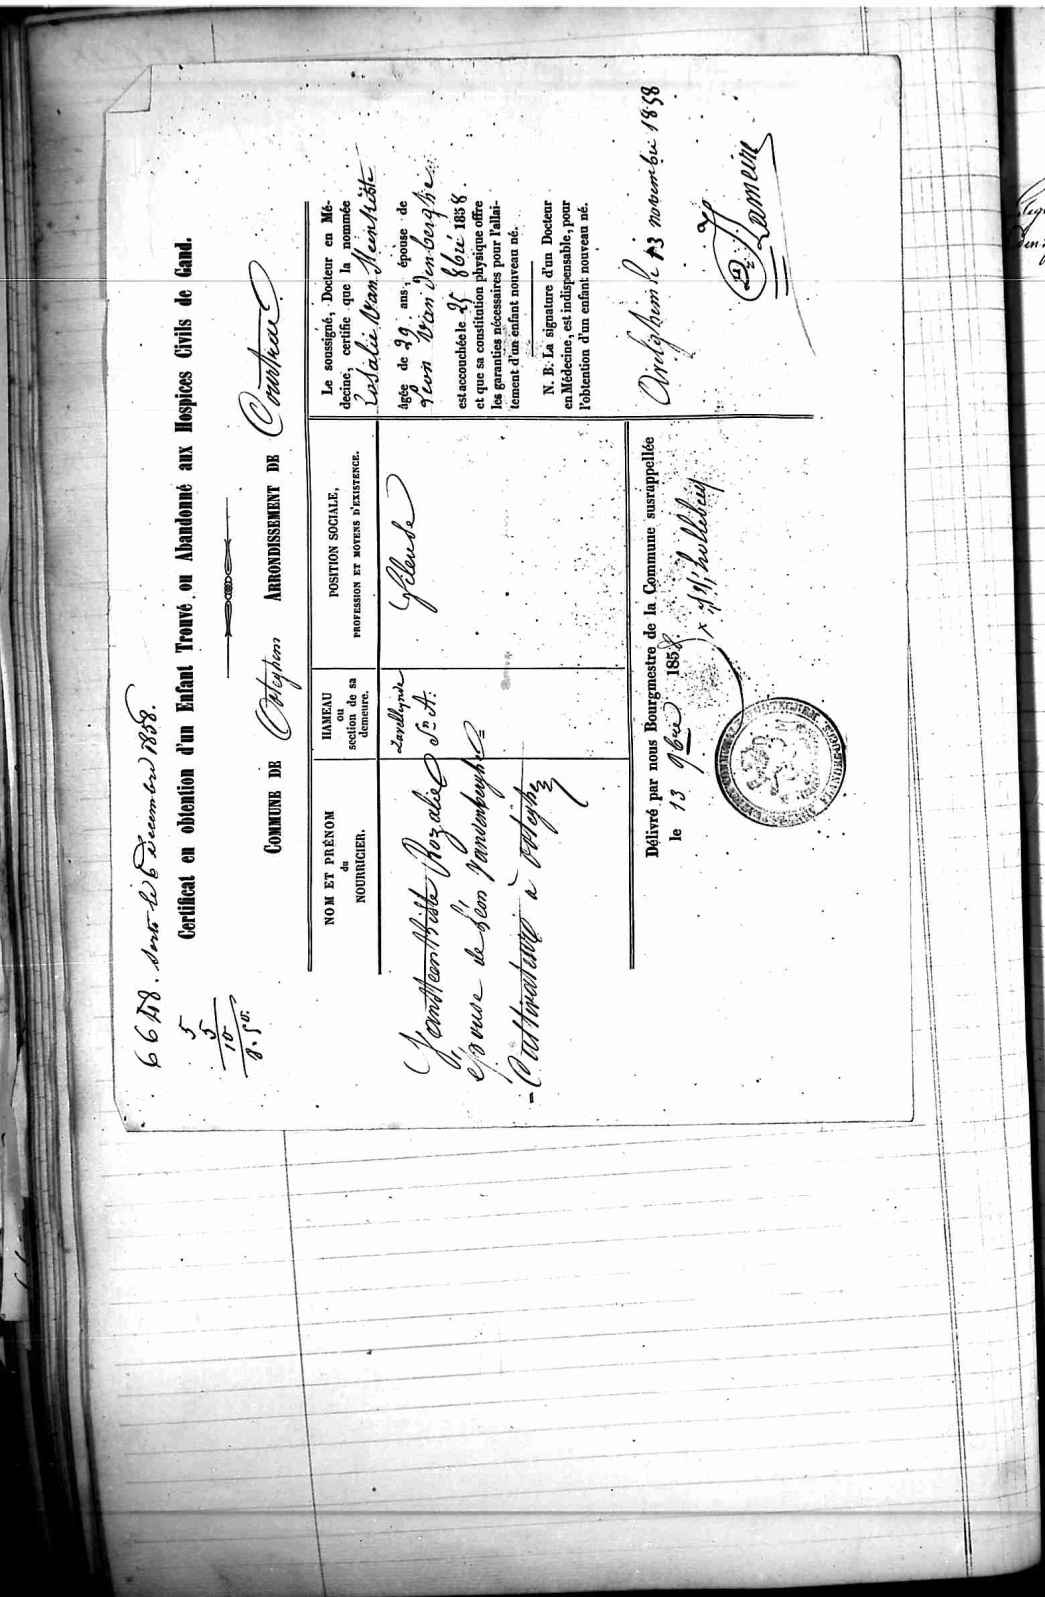 6648. Sorti le 6 Decembre 1858.
5
5
10
Certificat en obtention d'un Enfant Trouvé ou Abandonné aux Hospices Civils de Gand.
COMMUNE DE Oteghem ARRONDISSEMENT DE Courtrai
NOM ET PRÉNOM
du
NOURRICIER.
HAMEAU
ou
section de sa
demeure.
POSITION SOCIALE,
PROFESSION ET MOYENS D'EXISTENCE.
Rozalie
épouse de Léon Vandenberghe
Cultivateur à Oteghem
Sn A.
Fileuse
Le soussigné, Docteur en Mé-
decine, certifie que la nommée
Rosalie Van Steenkiste
âgée de 29 ans, épouse de
Leon Van den berghe
est accouchée le 25 8bre 1858.
et que sa constitution physique offre
les garanties nécessaires pour l'allai-
tement d'un enfant nouveau né.
N. B. La signature d'un Docteur
en Médecine, est indispensable, pour
l'obtention d'un enfant nouveau né.
le 13 novembre 1858
Délivré par nous Bourgmestre de la Commune susrappellée
le 13 9bre 1858